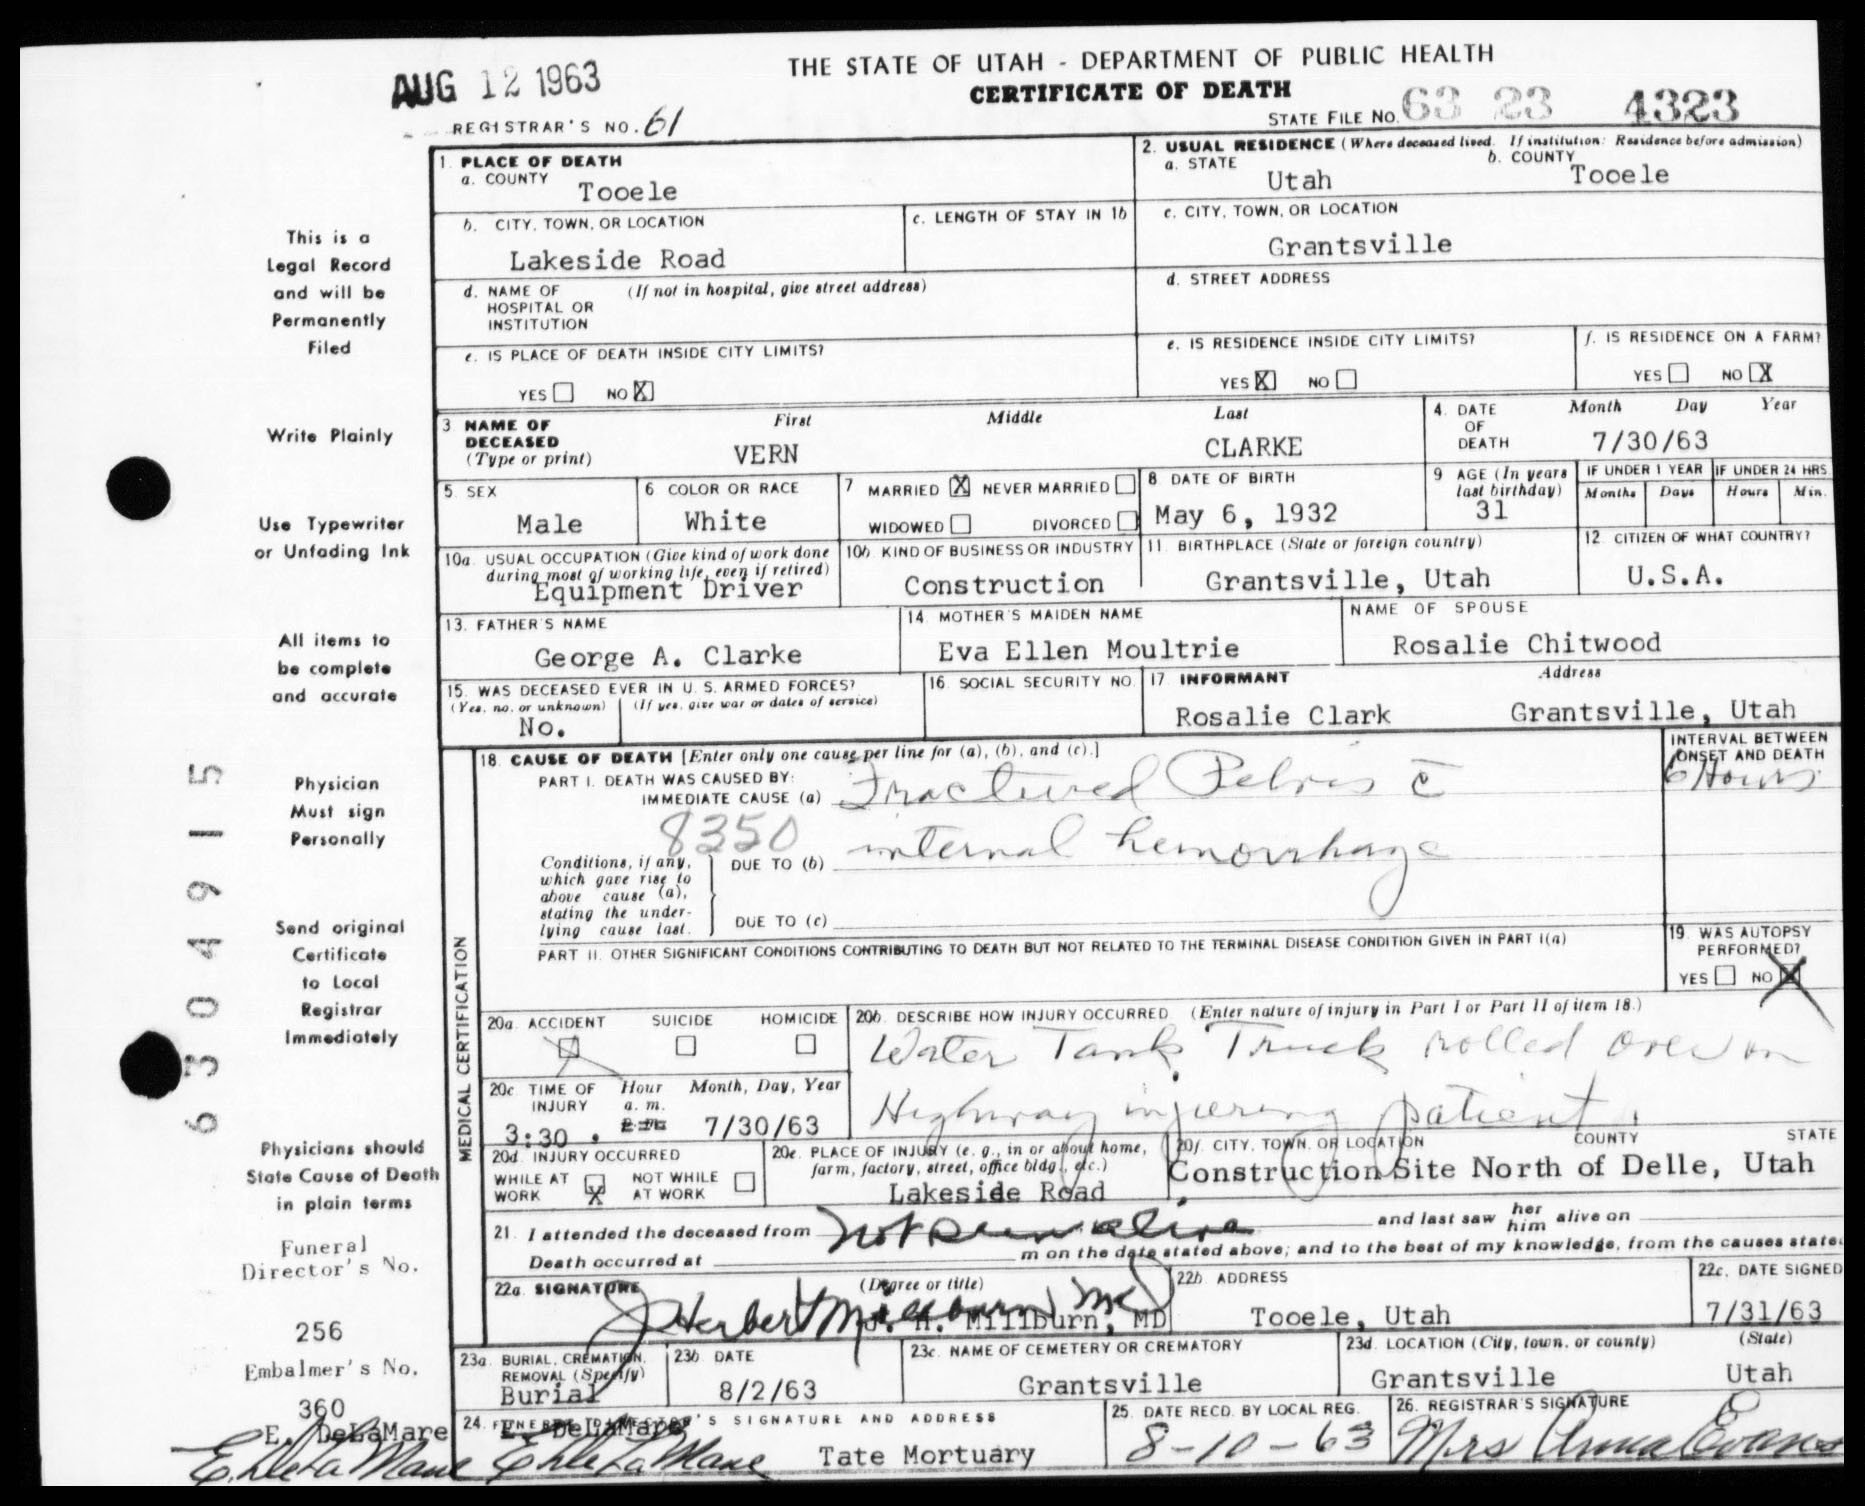 AUG 12 1963
THE STATE OF UTAH - DEPARTMENT OF PUBLIC HEALTH
CERTIFICATE OF DEATH
REGISTRAR'S NO. 61
STATE FILE NO. 63 23 4323
This is a
Legal Record
and will be
Permanently
Filed
Write Plainly
Use Typewriter
or Unfading Ink
All items to
be complete
and accurate
Physician
Must sign
Personally
Send original
Certificate
to Local
Registrar
Immediately
Physicians should
State Cause of Death
in plain terms
Funeral
Director's No.
256
Embalmer's No.
360
E. DeLaMare
6304915
1. PLACE OF DEATH
a. COUNTY
Tooele
2. USUAL RESIDENCE (Where deceased lived. If institution: Residence before admission)
a. STATE
Utah
b. COUNTY
Tooele
b. CITY, TOWN, OR LOCATION
Lakeside Road
c. LENGTH OF STAY IN 1b
c. CITY, TOWN, OR LOCATION
Grantsville
d. NAME OF (If not in hospital, give street address)
HOSPITAL OR
INSTITUTION
d. STREET ADDRESS
e. IS PLACE OF DEATH INSIDE CITY LIMITS?
YES NO X
e. IS RESIDENCE INSIDE CITY LIMITS?
YES X NO
f. IS RESIDENCE ON A FARM?
YES NO X
3 NAME OF
DECEASED
(Type or print)
First Middle Last
VERN CLARKE
4. DATE
OF
DEATH
Month Day Year
7/30/63
5. SEX
Male
6 COLOR OR RACE
White
7 MARRIED X NEVER MARRIED
WIDOWED DIVORCED
8 DATE OF BIRTH
May 6, 1932
9 AGE (In years
last birthday)
31
IF UNDER 1 YEAR
Months Days
IF UNDER 24 HRS.
Hours Min.
10a. USUAL OCCUPATION (Give kind of work done
during most of working life, even if retired)
Equipment Driver
10b. KIND OF BUSINESS OR INDUSTRY
Construction
11. BIRTHPLACE (State or foreign country)
Grantsville, Utah
12. CITIZEN OF WHAT COUNTRY?
U.S.A.
13. FATHER'S NAME
George A. Clarke
14. MOTHER'S MAIDEN NAME
Eva Ellen Moultrie
NAME OF SPOUSE
Rosalie Chitwood
15. WAS DECEASED EVER IN U. S. ARMED FORCES?
(Yes, no, or unknown) (If yes, give war or dates of service)
No.
16. SOCIAL SECURITY NO.
17 INFORMANT Address
Rosalie Clark Grantsville, Utah
MEDICAL CERTIFICATION
18. CAUSE OF DEATH [Enter only one cause per line for (a), (b), and (c).]
PART I. DEATH WAS CAUSED BY:
IMMEDIATE CAUSE (a) Fractured Pelvis c̄
8350
Conditions, if any,
which gave rise to
above cause (a),
stating the under-
lying cause last.
DUE TO (b) internal hemorrhage
DUE TO (c)
INTERVAL BETWEEN
ONSET AND DEATH
6 Hours
PART II. OTHER SIGNIFICANT CONDITIONS CONTRIBUTING TO DEATH BUT NOT RELATED TO THE TERMINAL DISEASE CONDITION GIVEN IN PART I(a)
19. WAS AUTOPSY
PERFORMED?
YES NO X
20a. ACCIDENT SUICIDE HOMICIDE
20b. DESCRIBE HOW INJURY OCCURRED (Enter nature of injury in Part I or Part II of item 18.)
Water Tank Truck rolled over on
Highway injuring patient.
20c TIME OF
INJURY
Hour
a. m.
p. m.
Month, Day, Year
3:30 . 7/30/63
20d. INJURY OCCURRED
WHILE AT
WORK X
NOT WHILE
AT WORK
20e. PLACE OF INJURY (e. g., in or about home,
farm, factory, street, office bldg., etc.)
Lakeside Road
20f. CITY, TOWN, OR LOCATION COUNTY STATE
Construction Site North of Delle, Utah
21. I attended the deceased from not seen alive and last saw her him alive on
Death occurred at m on the date stated above; and to the best of my knowledge, from the causes state
22a. SIGNATURE (Degree or title)
J Herbert Millburn MD
J. H. Millburn, MD
22b. ADDRESS
Tooele, Utah
22c. DATE SIGNED
7/31/63
23a. BURIAL, CREMATION,
REMOVAL (Specify)
Burial
23b DATE
8/2/63
23c. NAME OF CEMETERY OR CREMATORY
Grantsville
23d. LOCATION (City, town, or county) (State)
Grantsville Utah
24. FUNERAL DIRECTOR'S SIGNATURE AND ADDRESS
E. DeLaMare
E. DeLaMare E. DeLaMare
Tate Mortuary
25. DATE RECD. BY LOCAL REG.
8-10-63
26. REGISTRAR'S SIGNATURE
Mrs Anna Evans